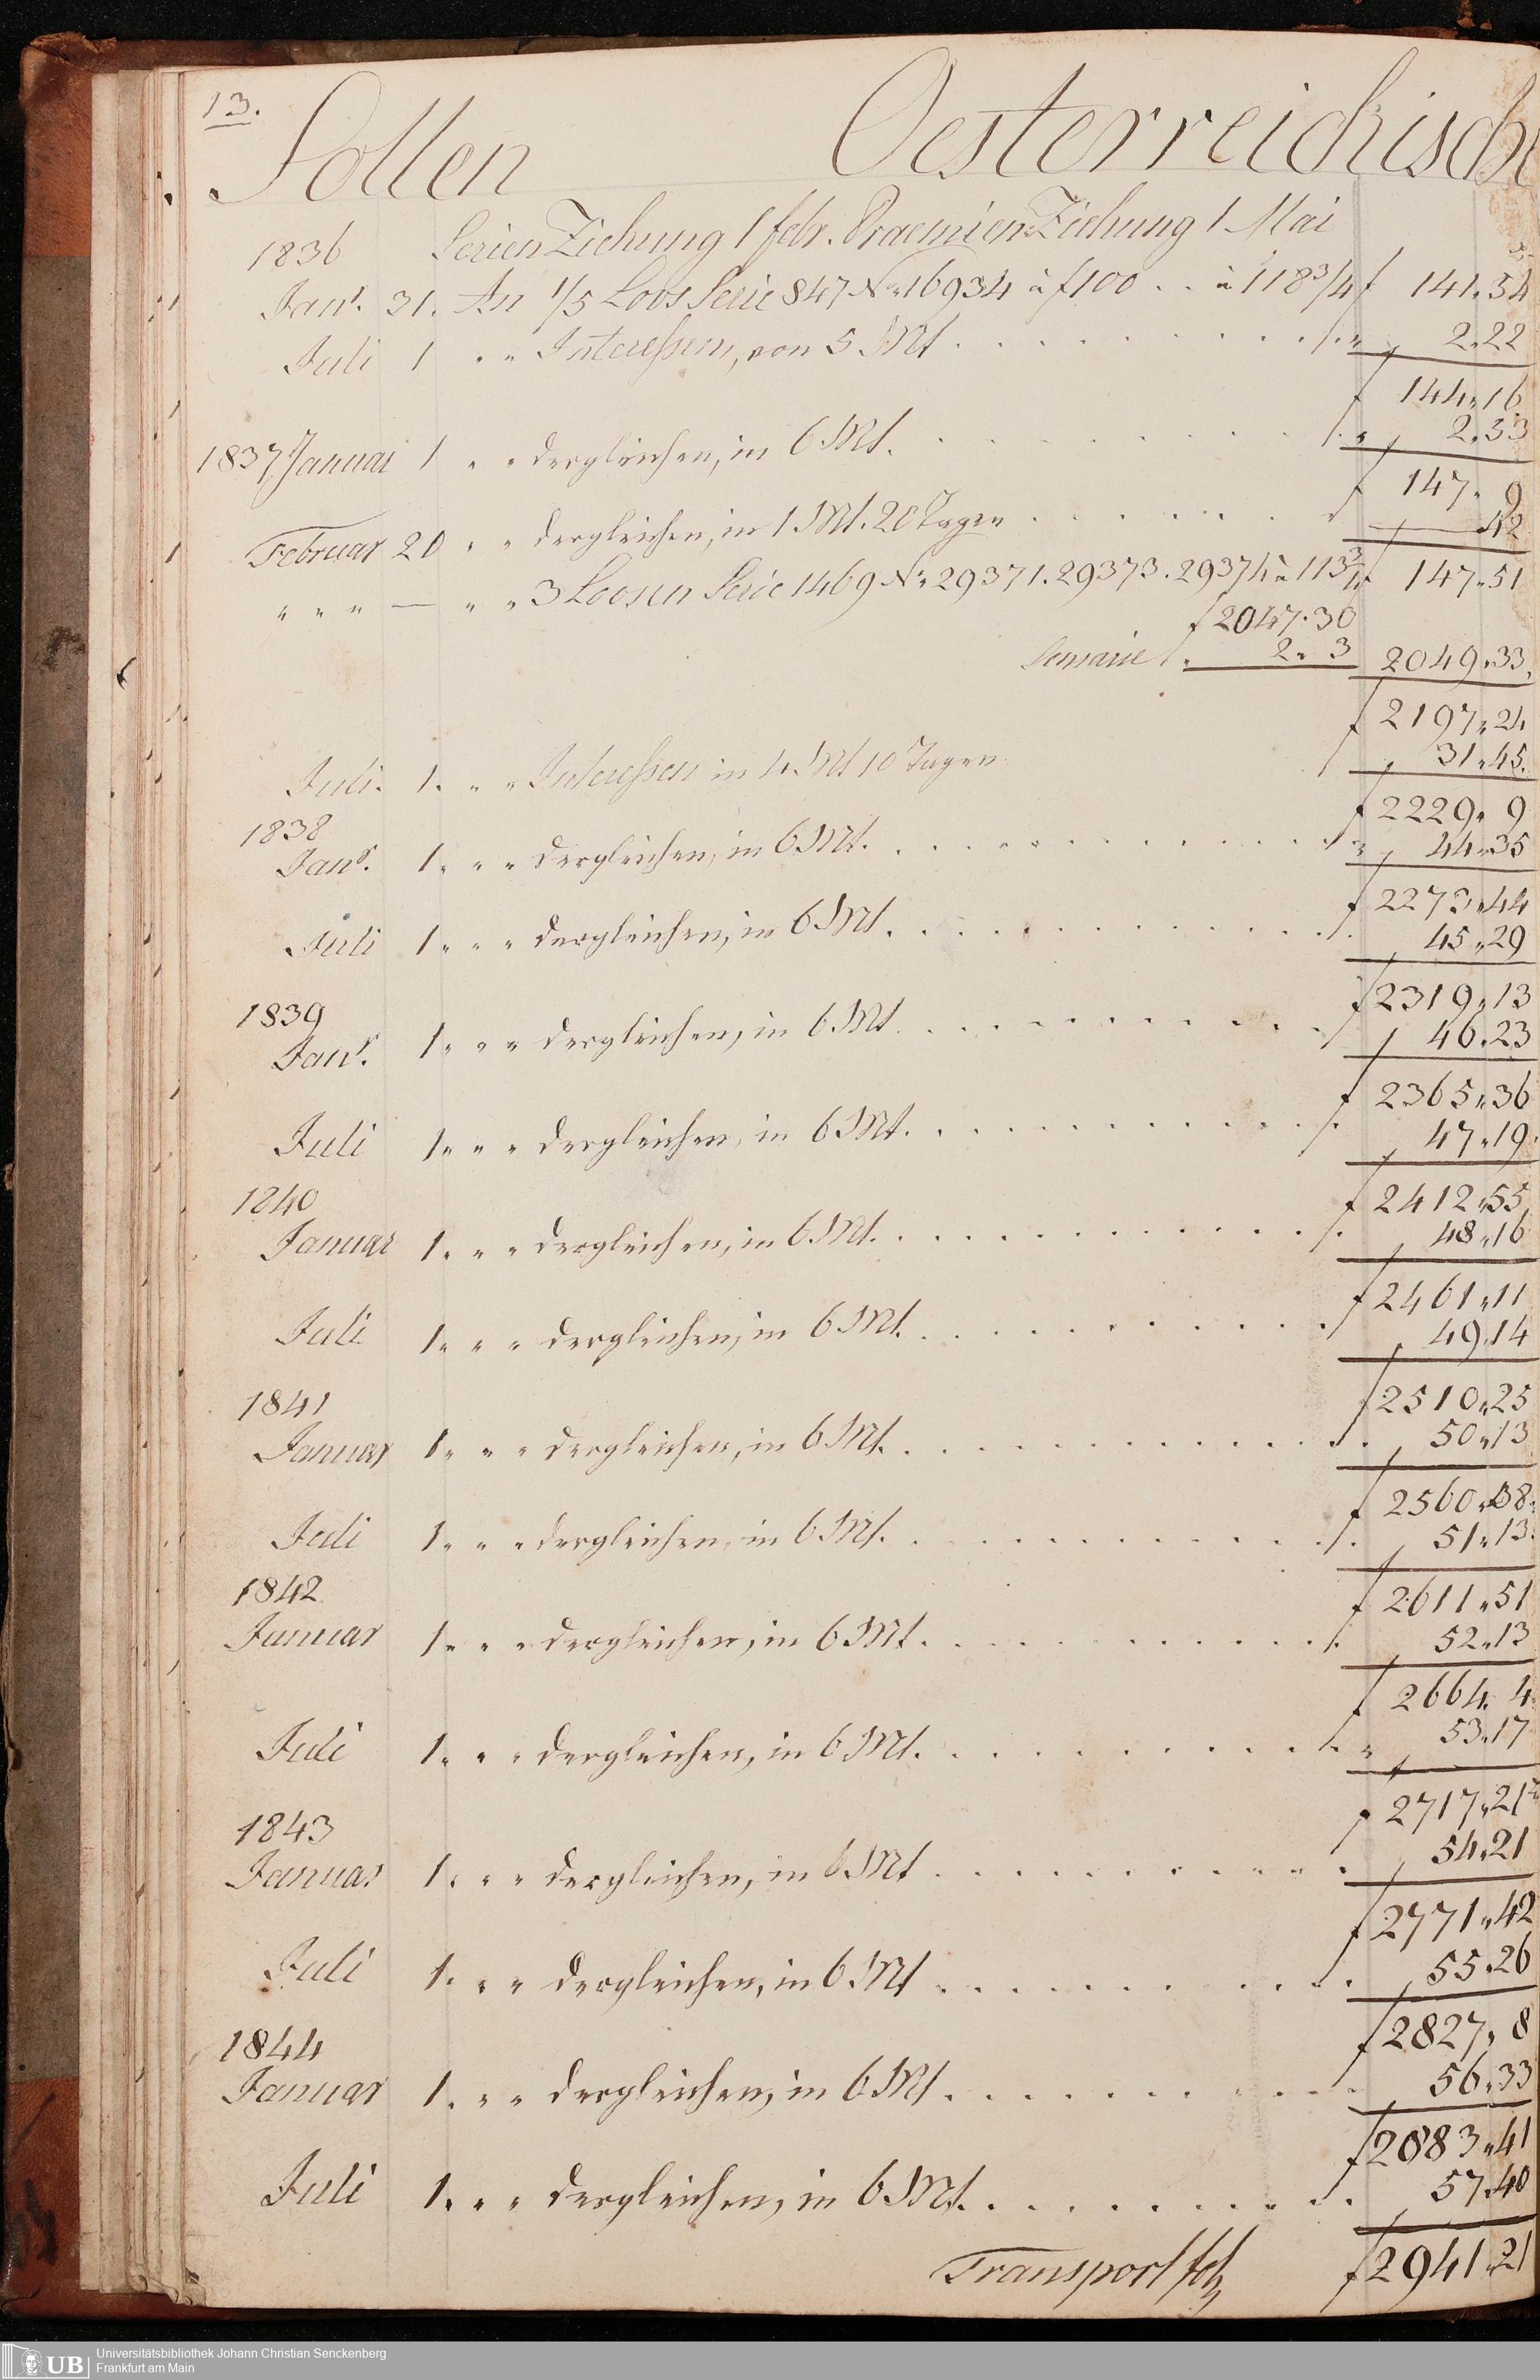 13.
Sollen Oesterreichisch
1836 Serien Ziehung 1 febr. Praemien Ziehung 1 Mai
Janr. 31. An 1/5 Loos Serie 847 No 16934 à f 100 . . à 118 3/4 f 141.54
Juli 1 " " Interessen, von 5 Mt . . . . . . . . . . 2.22
f 144.16
1837 Januar 1 " " dergleichen, in 6 Mt. . . . . . . . . . 2.53
f 147. 9
Februar 20 " " dergleichen, in 1 Mt. 20 Tagen . . . . . . . — 42
" " " — " " 3 Loosen Serie 1469 No 29371. 29373. 29374 à 113 3/4 f 147.51
f 2047.30
2. 3 2049.33.
f 2197.24
Juli. 1. " " Interessen in 4 Mt 10 Tagen 31.45.
f 2229. 9
1838
Janr. 1. " " dergleichen, in 6 Mt. . . . . . . . . . . 44.35
f 2273.44
Juli 1. " " dergleichen, in 6 Mt. . . . . . . . . . . 45.29
f 2319.13
1839
Janr. 1. " " dergleichen, in 6 Mt. . . . . . . . . . . 46.23
f 2365.36
Juli 1. " " dergleichen, in 6 Mt. . . . . . . . . . . 47.19.
f 2412.55
1840
Januar 1. " " dergleichen, in 6 Mt. . . . . . . . . . . 48.16
f 2461.11
Juli 1. " " dergleichen, in 6 Mt. . . . . . . . . . . 49.14
f 2510.25
1841
Januar 1. " " dergleichen, in 6 Mt. . . . . . . . . . . 50.13
f 2560.38.
Juli 1. " " dergleichen, in 6 Mt. . . . . . . . . . . 51.13.
f 2611.51
1842
Januar 1. " " dergleichen, in 6 Mt. . . . . . . . . . . 52.13
f 2664. 4.
Juli 1. " " dergleichen, in 6 Mt. . . . . . . . . . . 53.17
f 2717.21
1843
Januar 1. " " dergleichen, in 6 Mt . . . . . . . . . . 54.21
f 2771.42
Juli 1. " " dergleichen, in 6 Mt . . . . . . . . . . 55.26
f 2827. 8
1844
Januar 1. " " dergleichen, in 6 Mt . . . . . . . . . . 56.33
f 2883.41
Juli 1. " " dergleichen, in 6 Mt. . . . . . . . . . 57.40
Transport f 2941.21
UB Universitätsbibliothek Johann Christian Senckenberg
Frankfurt am Main